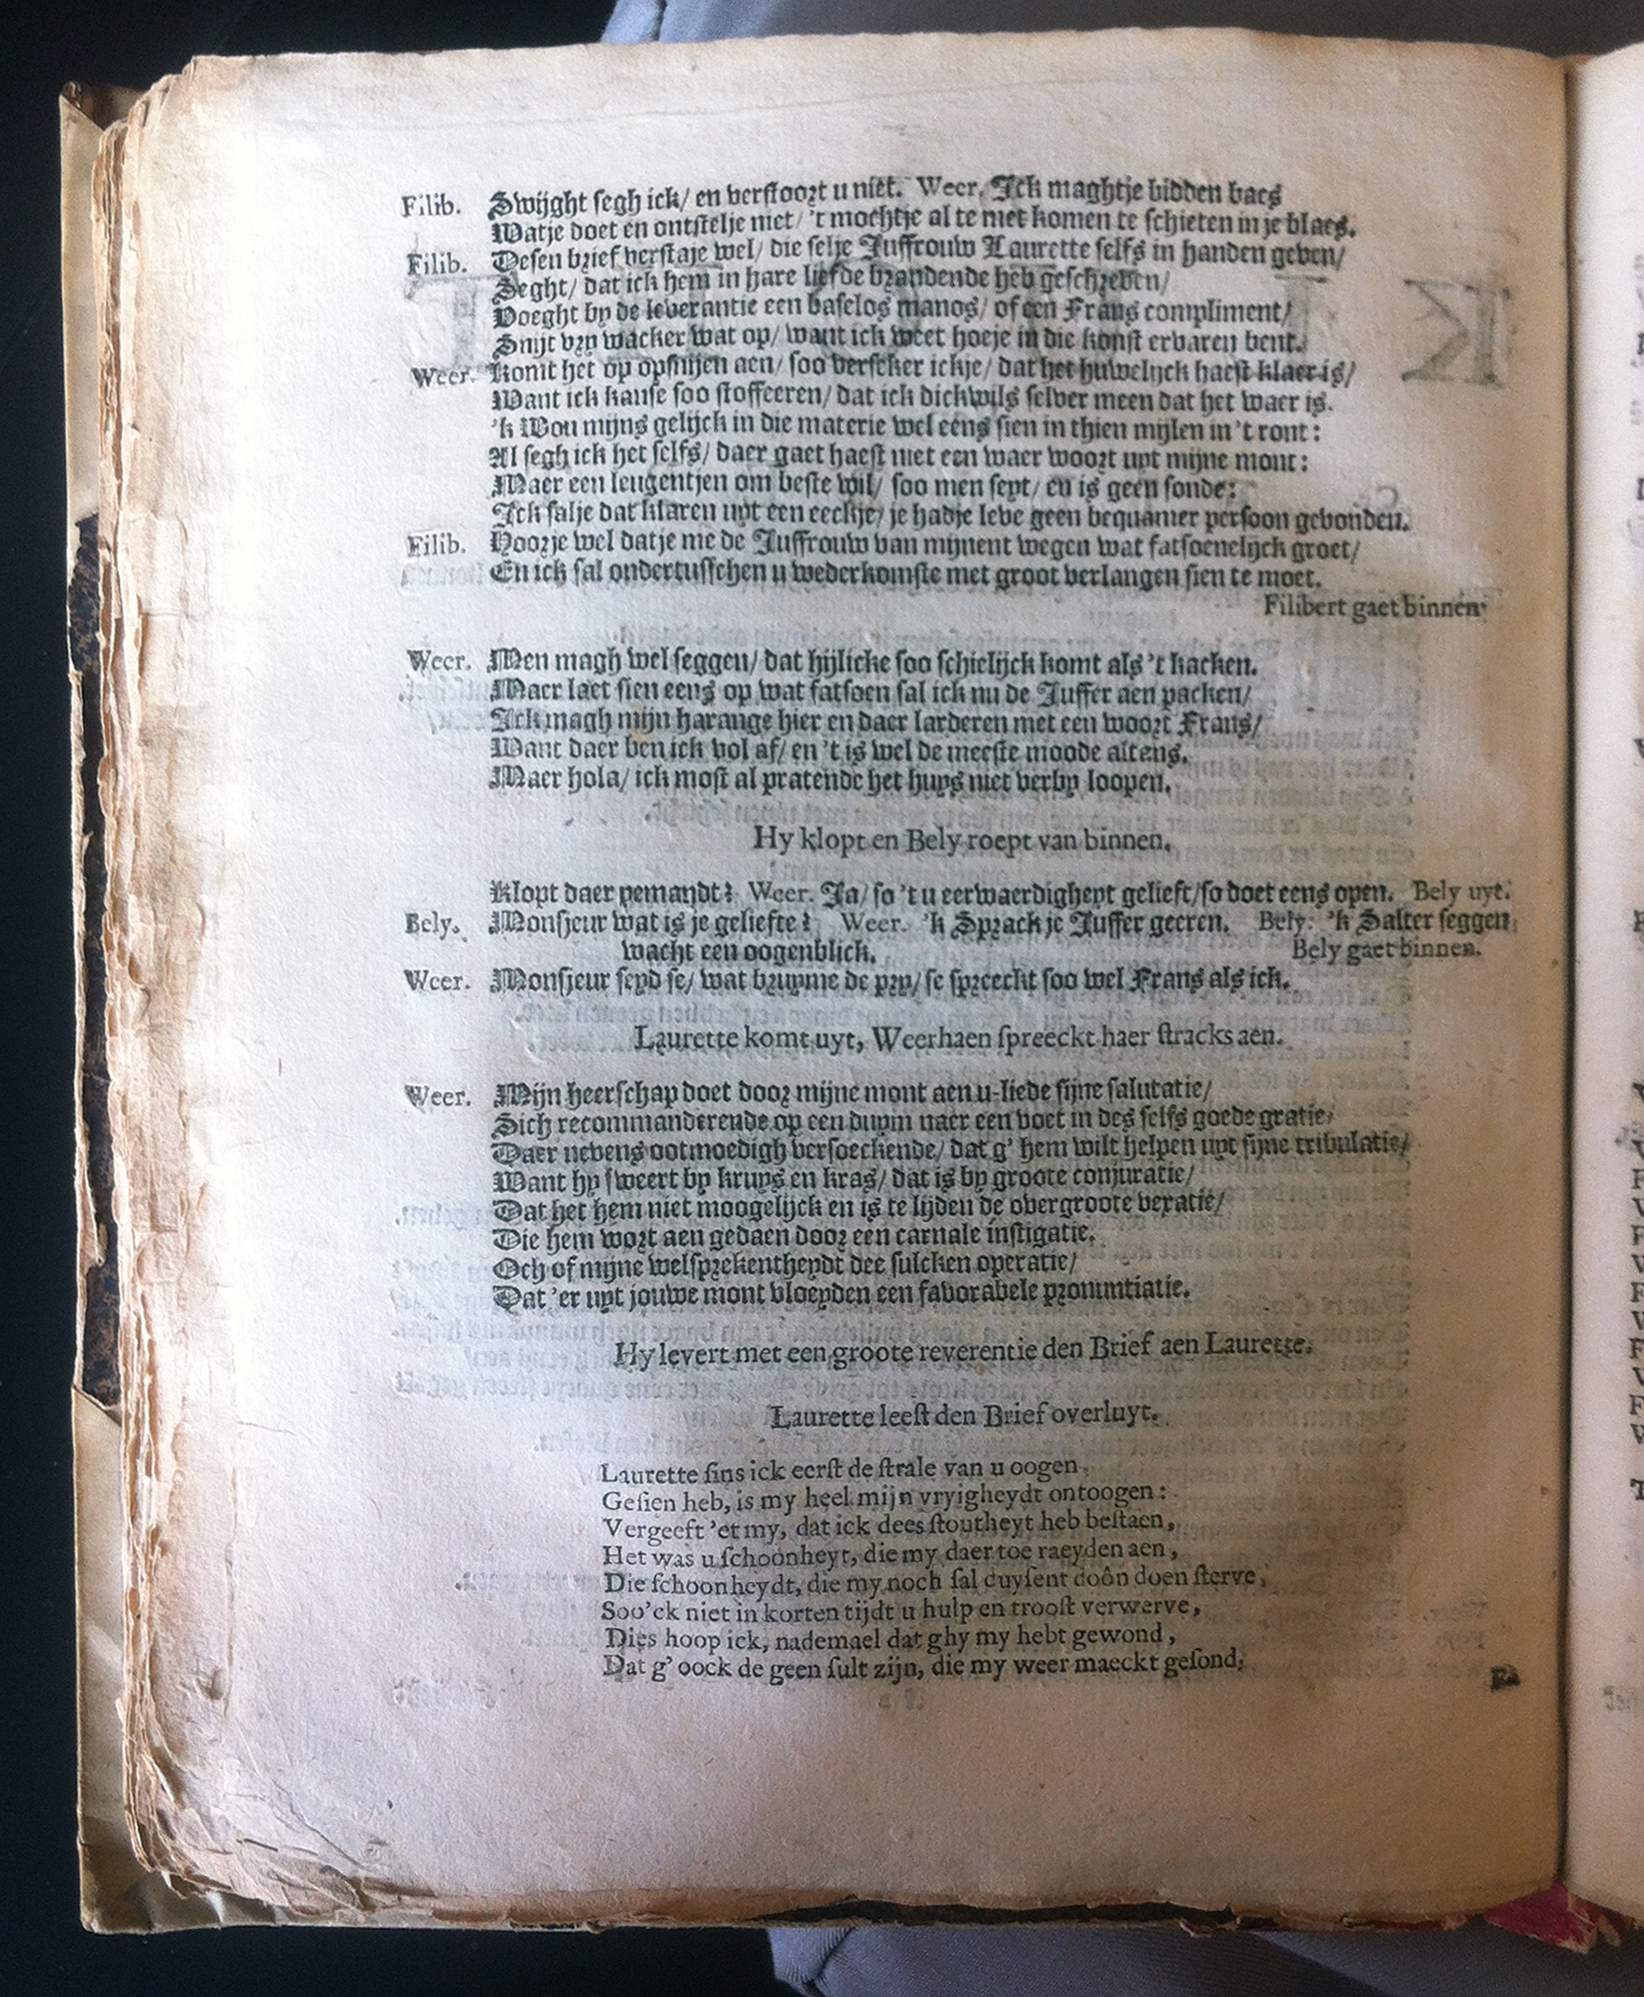 Filib. Swijght segh ick/ en verstoort u niet. Weer. Ick maghtje bidden baes
Watje doet en ontstelje niet/ 't mochtje al te met komen te schieten in je blaes.
Filib. Desen brief verstaje wel/ die selje Juffrouw Laurette selfs in handen geven/
Seght/ dat ick hem in hare liefde brandende heb geschreven/
Voeght by de leverantie een baselos manos/ of een Frans compliment/
Snijt vry wacker wat op/ want ick weet hoeje in die konst ervaren bent.
Weer. Komt het op opsnijen aen/ soo verseker ickje/ dat het huwelijck haest klaer is/
Want ick kanse soo stoffeeren/ dat ick dickwils selver meen dat het waer is.
'k Wou mijns gelijck in die materie wel eens sien in thien mijlen in 't ront:
Al segh ick het selfs/ daer gaet haest niet een waer woort uyt mijne mont:
Maer een leugentjen om beste wil/ soo men seyt/ en is geen sonde:
Ick salje dat klaren uyt een eeckje/ je hadje leve geen bequamer persoon gevonden.
Filib. Hoorje wel datje me de Juffrouw van mijnent wegen wat fatsoenelijck groet/
En ick sal ondertusschen u wederkomste met groot verlangen sien te moet.
Filibert gaet binnen.
Weer. Men magh wel seggen/ dat hijlicke soo schielijck komt als 't kacken.
Maer laet sien eens op wat fatsoen sal ick nu de Juffer aen packen/
Ick magh mijn harange hier en daer larderen met een woort Frans/
Want daer ben ick vol af/ en 't is wel de meeste moode altens.
Maer hola/ ick most al pratende het huys niet verby loopen.
Hy klopt en Bely roept van binnen.
Klopt daer yemandt? Weer. Ja/ so 't u eerwaerdigheyt gelieft/ so doet eens open. Bely uyt.
Bely. Monsjeur wat is je geliefte? Weer. 'k Sprack je Juffer geeren. Bely. 'k Salter seggen
wacht een oogenblick. Bely gaet binnen.
Weer. Monsjeur seyd se/ wat bruyme de pry/ se spreeckt soo wel Frans als ick.
Laurette komt uyt, Weerhaen spreeckt haer stracks aen.
Weer. Mijn heerschap doet door mijne mont aen u-liede sijne salutatie/
Sich recommanderende op een duym naer een voet in des selfs goede gratie/
Daer nevens ootmoedigh versoeckende/ dat g' hem wilt helpen uyt sijne tribulatie/
Want hy sweert by kruys en kras/ dat is by groote conjuratie/
Dat het hem niet moogelijck en is te lijden de overgroote vexatie/
Die hem wort aen gedaen door een carnale instigatie.
Och of mijne welsprekentheydt dee sulcken operatie/
Dat 'er uyt jouwe mont vloeyden een favorabele pronuntiatie.
Hy levert met een groote reverentie den Brief aen Laurette.
Laurette leest den Brief overluyt.
Laurette sins ick eerst de strale van u oogen
Gesien heb, is my heel mijn vryigheydt ontoogen:
Vergeeft 'et my, dat ick dees stoutheyt heb bestaen,
Het was u schoonheyt, die my daer toe raeyden aen,
Die schoonheydt, die my noch sal duysent doôn doen sterve,
Soo'ck niet in korten tijdt u hulp en troost verwerve,
Dies hoop ick, nademael dat ghy my hebt gewond,
Dat g' oock de geen sult zijn, die my weer maeckt gesond,